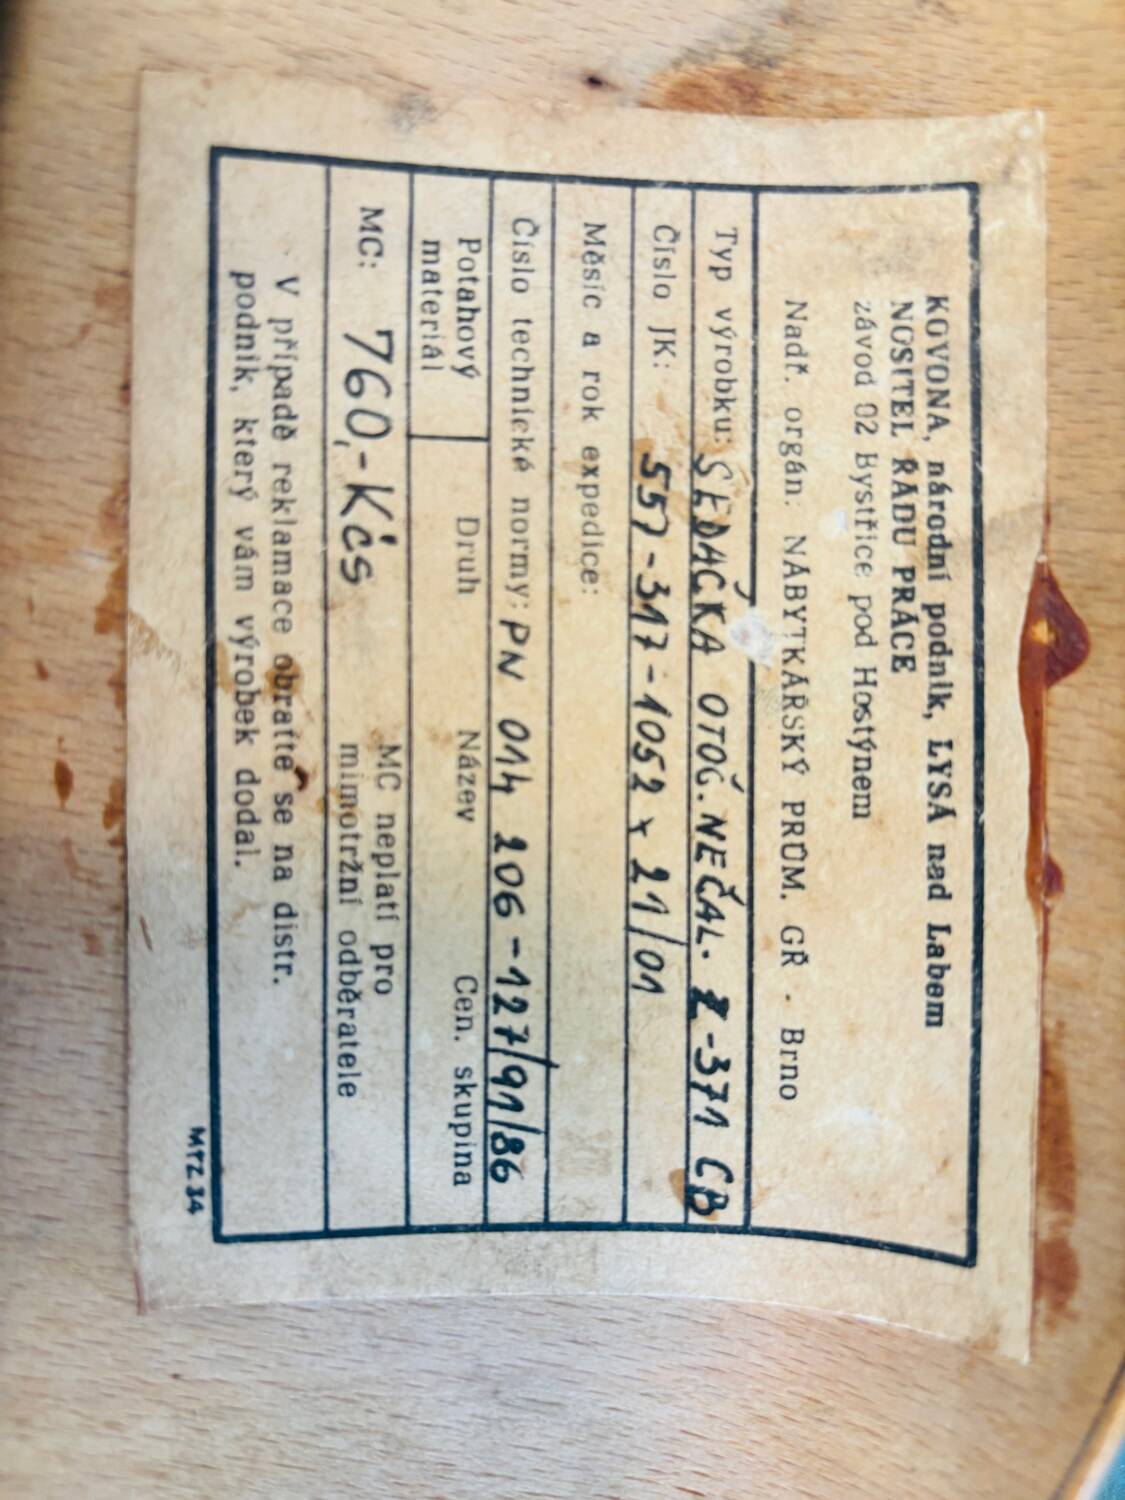 KOVONA, národní podnik, LYSÁ nad Labem
NOSITEL ŘÁDU PRÁCE
závod 02 Bystřice pod Hostýnem
Nadř. orgán: NÁBYTKÁŘSKÝ PRŮM. GŘ - Brno
Typ výrobku: SEDAČKA OTOČ. NEČAL. Z-371 CB
Číslo JK: 557-317-1052 x 21/01
Měsíc a rok expedice:
Číslo technické normy: PN 014 206-127/91/86
Potahový materiál Druh Název Cen. skupina
MC: 760,- Kčs MC neplatí pro
mimotržní odběratele
V případě reklamace obraťte se na distr.
podnik, který vám výrobek dodal.
MTZ 34